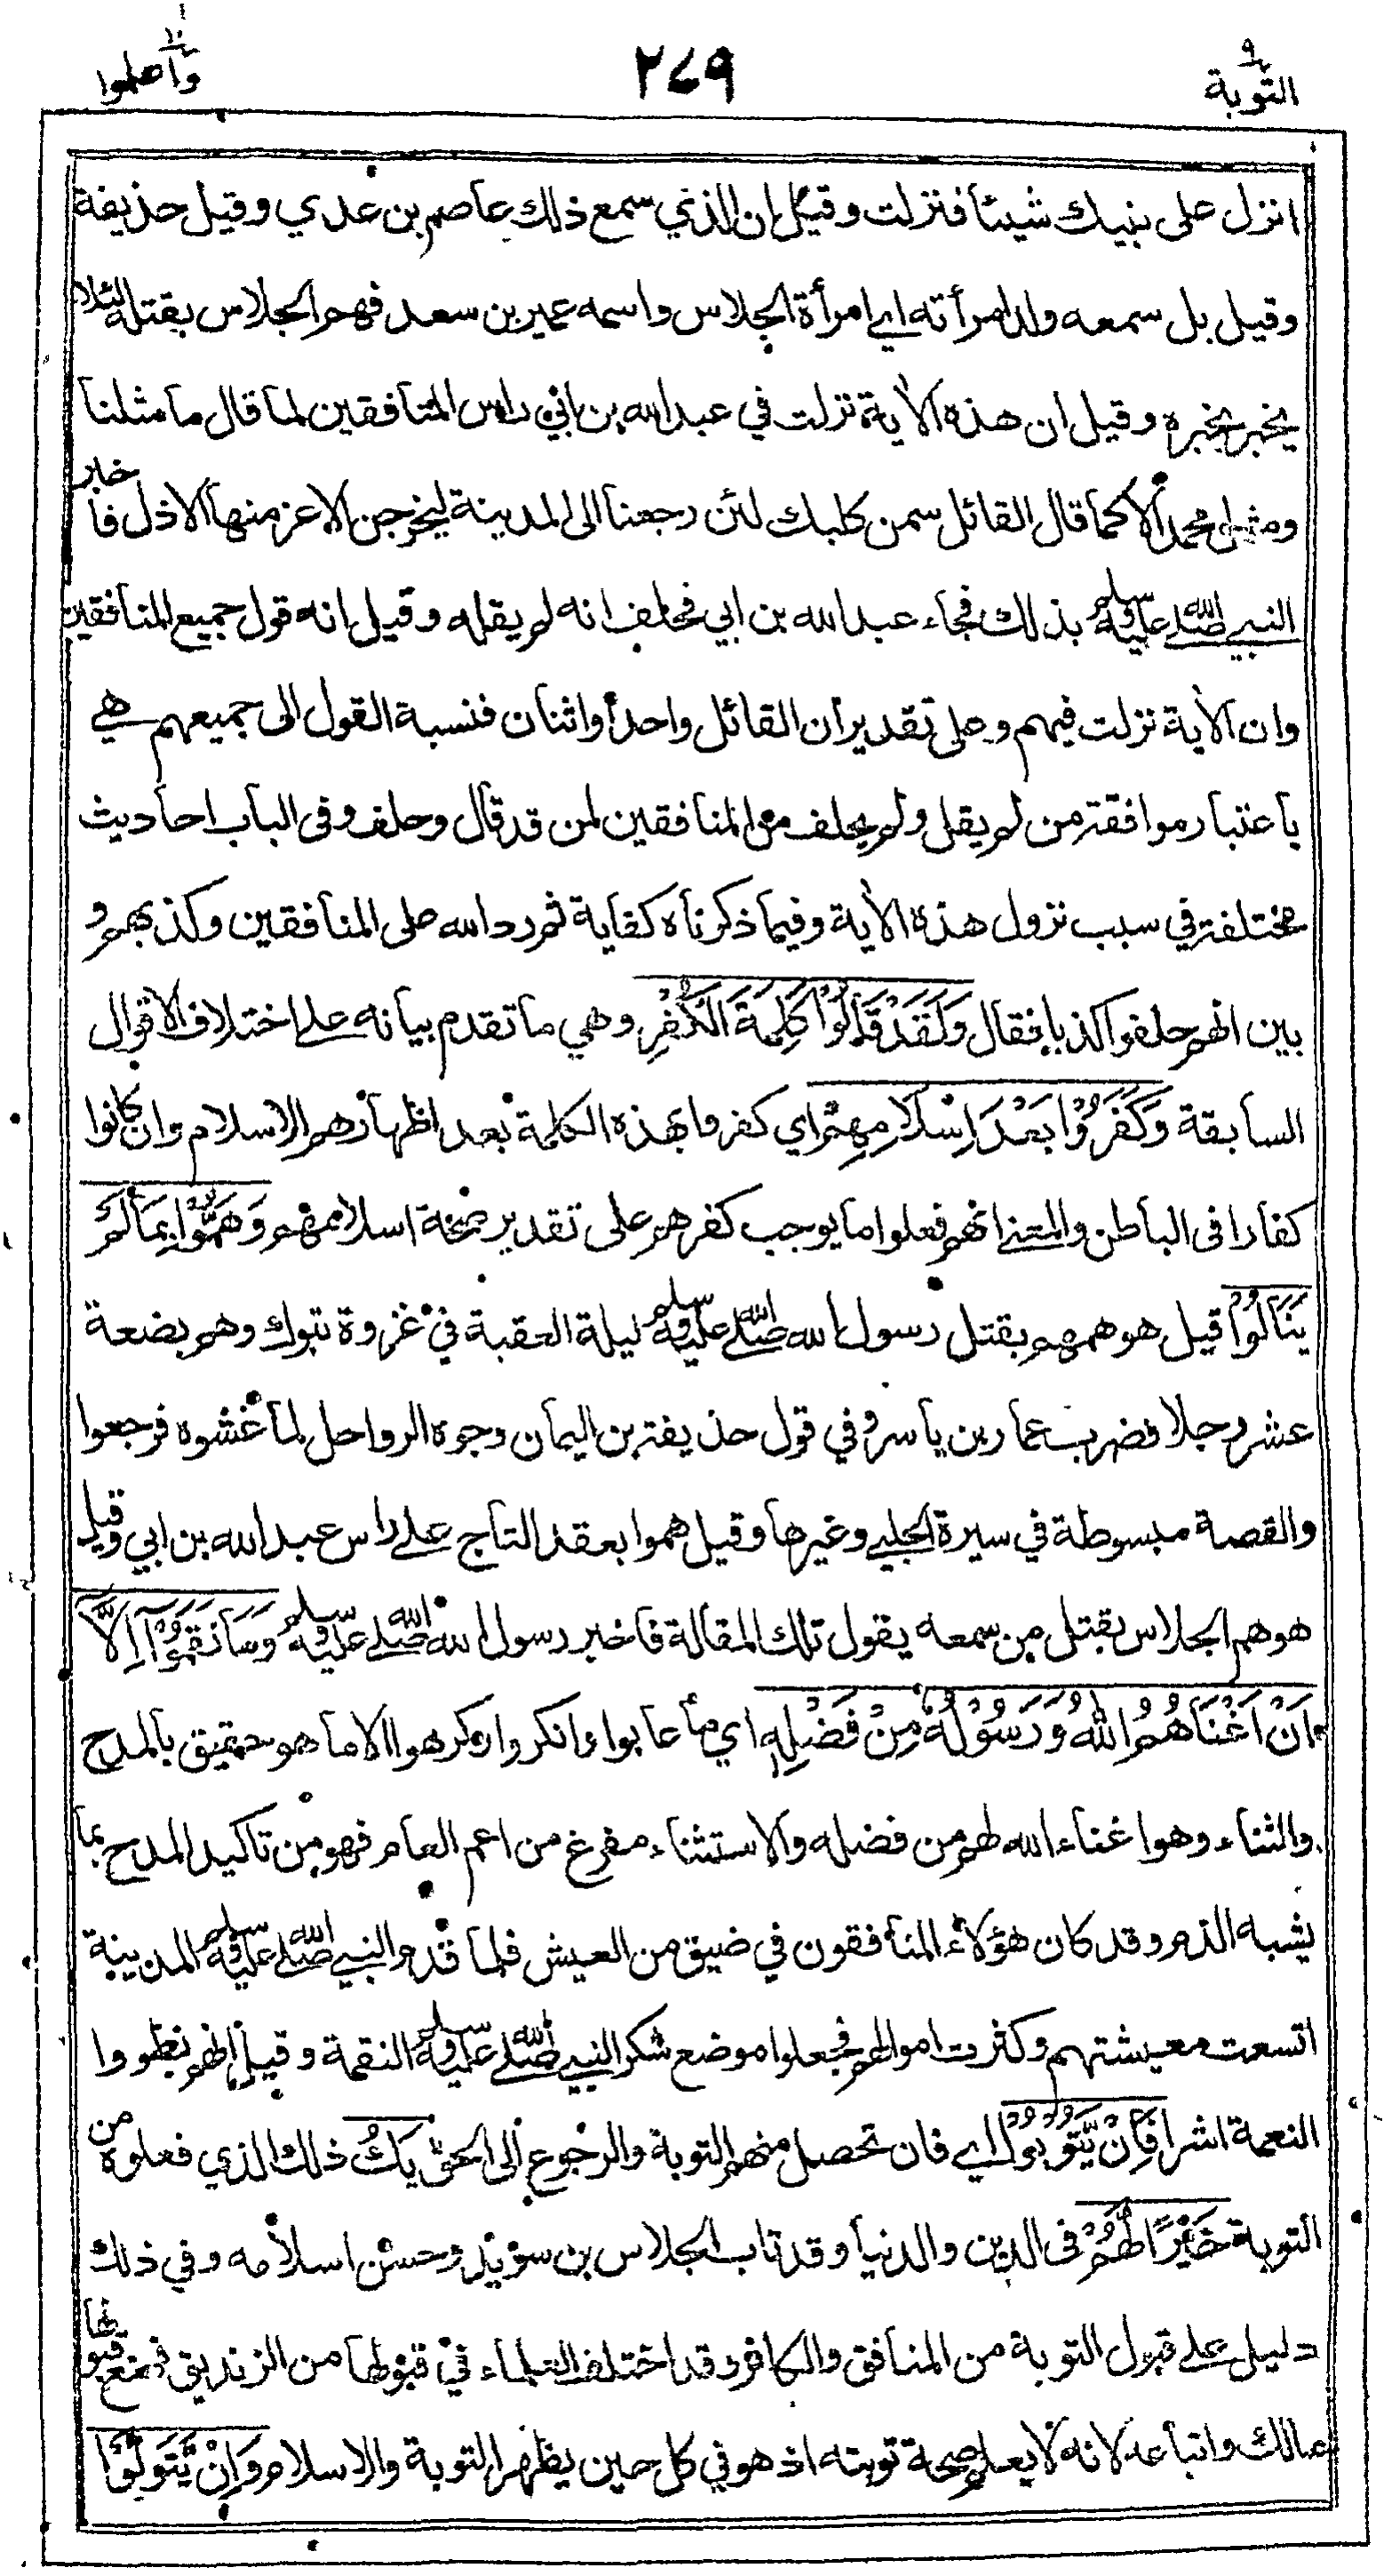 التوبة ٩
٢٧٩
واعلموا ١٠
انزل على نبيك شيئا فنزلت وقيل ان الذي سمع ذلك عاصم بن عدي وقيل حذيفة
وقيل بل سمعه ولد امرأته اي امرأة الجلاس واسمه عمير بن سعد فهم الجلاس بقتله لئلا
يخبر بخبره وقيل ان هذه الآية نزلت في عبد الله بن ابي راس المنافقين لما قال ما مثلنا
ومثل محمد الا كما قال القائل سمن كلبك لئن رجعنا الى المدينة ليخرجن الاعز منها الاذل فاخبر
النبي صلى الله عليه وسلم بذلك فجاء عبد الله بن ابي فحلف انه لم يقله وقيل انه قول جميع المنافقين
وان الآية نزلت فيهم وعلى تقدير ان القائل واحد أو اثنان فنسبة القول الى جميعهم هي
باعتبار موافقة من لم يقل ولم يحلف من المنافقين لمن قد قال وحلف وفى الباب احاديث
مختلفة في سبب نزول هذه الآية وفيما ذكرناه كفاية ثم رد الله على المنافقين وكذبهم و
بين انهم حلفوا كذبا فقال وَلَقَدْ قَالُوْا كَلِمَةَ الْكُفْرِ وهي ما تقدم بيانه على اختلاف الاقوال
السابقة وَكَفَرُوْا بَعْدَ اِسْلَامِهِمْ اي كفروا بهذه الكلمة بعد اظهارهم الاسلام وان كانوا
كفارا فى الباطن والمعنى انهم فعلوا ما يوجب كفرهم على تقدير صحة اسلامهم وَهَمُّوْا بِمَا لَمْ
يَنَالُوْا قيل هو همهم بقتل رسول الله صلى الله عليه وسلم ليلة العقبة في غزوة تبوك وهم بضعة
عشر رجلا فضرب عمار بن ياسر وفي قول حذيفة بن اليمان وجوه الرواحل لما غشوه فرجعوا
والقصة مبسوطة في سيرة الحلبي وغيرها وقيل هموا بعقد التاج على راس عبد الله بن ابي وقيل
هو هم الجلاس بقتل من سمعه يقول تلك المقالة فاخبر رسول الله صلى الله عليه وسلم وَمَا نَقَمُوْا اِلَّا
اَنْ اَغْنَاهُمُ اللهُ وَرَسُوْلُهُ مِنْ فَضْلِهِ اي ما عابوا وانكروا وكرهوا الا ما هو حقيق بالمدح
والثناء وهو اغناء الله لهم من فضله والاستثناء مفرغ من اعم العام فهو من تاكيد المدح بما
يشبه الذم وقد كان هؤلاء المنافقون في ضيق من العيش فلما قدم النبي صلى الله عليه وسلم المدينة
اتسعت معيشتهم وكثرت اموالهم فجعلوا موضع شكر النبي صلى الله عليه وسلم النقمة وقيل انهم بطروا
النعمة اشرا فَاِنْ يَّتُوْبُوْا اي فان تحصل منهم التوبة والرجوع الى الحق يَكُ ذلك الذي فعلوه من
التوبة خَيْرًا لَّهُمْ فى الدين والدنيا وقد تاب الجلاس بن سويد وحسن اسلامه وفي ذلك
دليل على قبول التوبة من المنافق والكافر وقد اختلف العلماء في قبولها من الزنديق فمنع قبولها
مالك واتباعه لانه لا يعلم صحة توبته اذ هو في كل حين يظهر التوبة والاسلام وَاِنْ يَّتَوَلَّوْا